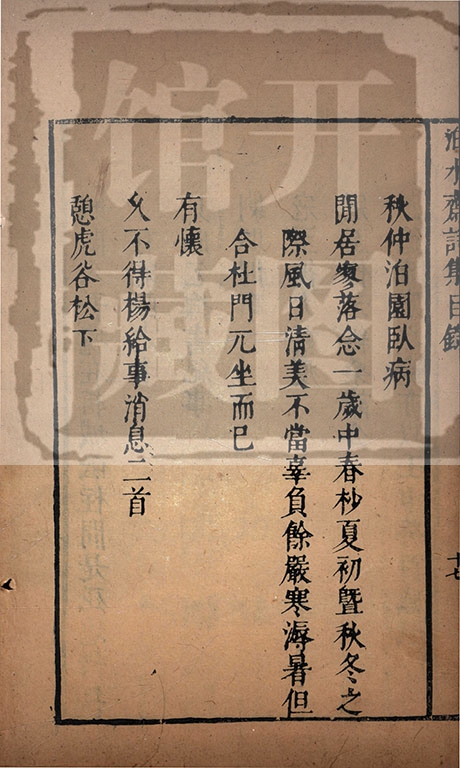 泊水齋詩集目錄
十七
秋仲泊園臥病
閒居寥落念一歲中春杪夏初暨秋冬之
際風日清美不當辜負餘嚴寒溽暑但
合杜門兀坐而已
有懷
久不得楊給事消息二首
憩虎谷松下
開館
圖藏